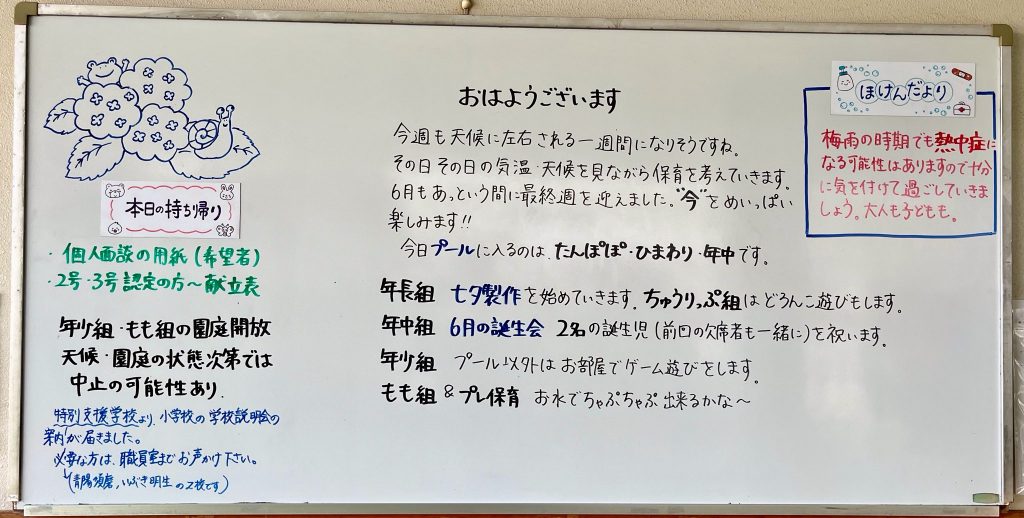 おはようございます
今週も天候に左右される一週間になりそうですね。
その日その日の気温・天候を見ながら保育を考えていきます。
6月もあっという間に最終週を迎えました。"今"をめいっぱい
楽しみます!!
今日プールに入るのは、たんぽぽ・ひまわり・年中です。
年長組 七夕製作を始めていきます。ちゅうりっぷ組はどろんこ遊びもします。
年中組 6月の誕生会 2名の誕生児(前回の欠席者も一緒に)を祝います。
年少組 プール以外はお部屋でゲーム遊びをします。
もも組&プレ保育 お水でちゃぷちゃぷ出来るかな〜
本日の持ち帰り
・個人面談の用紙(希望者)
・2号・3号認定の方〜献立表
年少組・もも組の園庭開放
天候・園庭の状態次第では
中止の可能性あり.
特別支援学校より、小学校の学校説明会の
案内が届きました。
必要な方は、職員室までお声かけ下さい。
(青陽須磨、いぶき明生の2校です)
ほけんだより
梅雨の時期でも熱中症に
なる可能性はありますので十分
に気を付けて過ごしていきま
しょう。大人も子どもも。